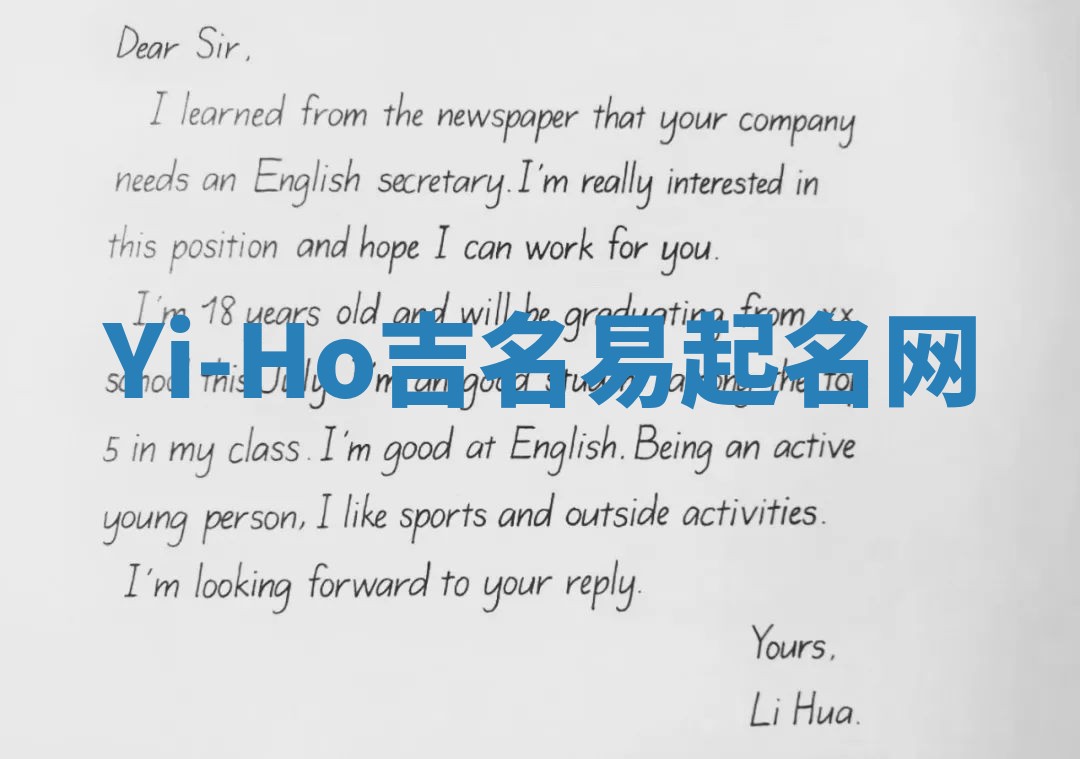 Dear Sir,
I learned from the newspaper that your company
needs an English secretary. I'm really interested in
this position and hope I can work for you.
I'm 18 years old and will be graduating from xx
Yi-Ho吉名易起名网
school this July. I'm an good student among the top
5 in my class. I'm good at English. Being an active
young person, I like sports and outside activities.
I'm looking forward to your reply.
Yours,
Li Hua.